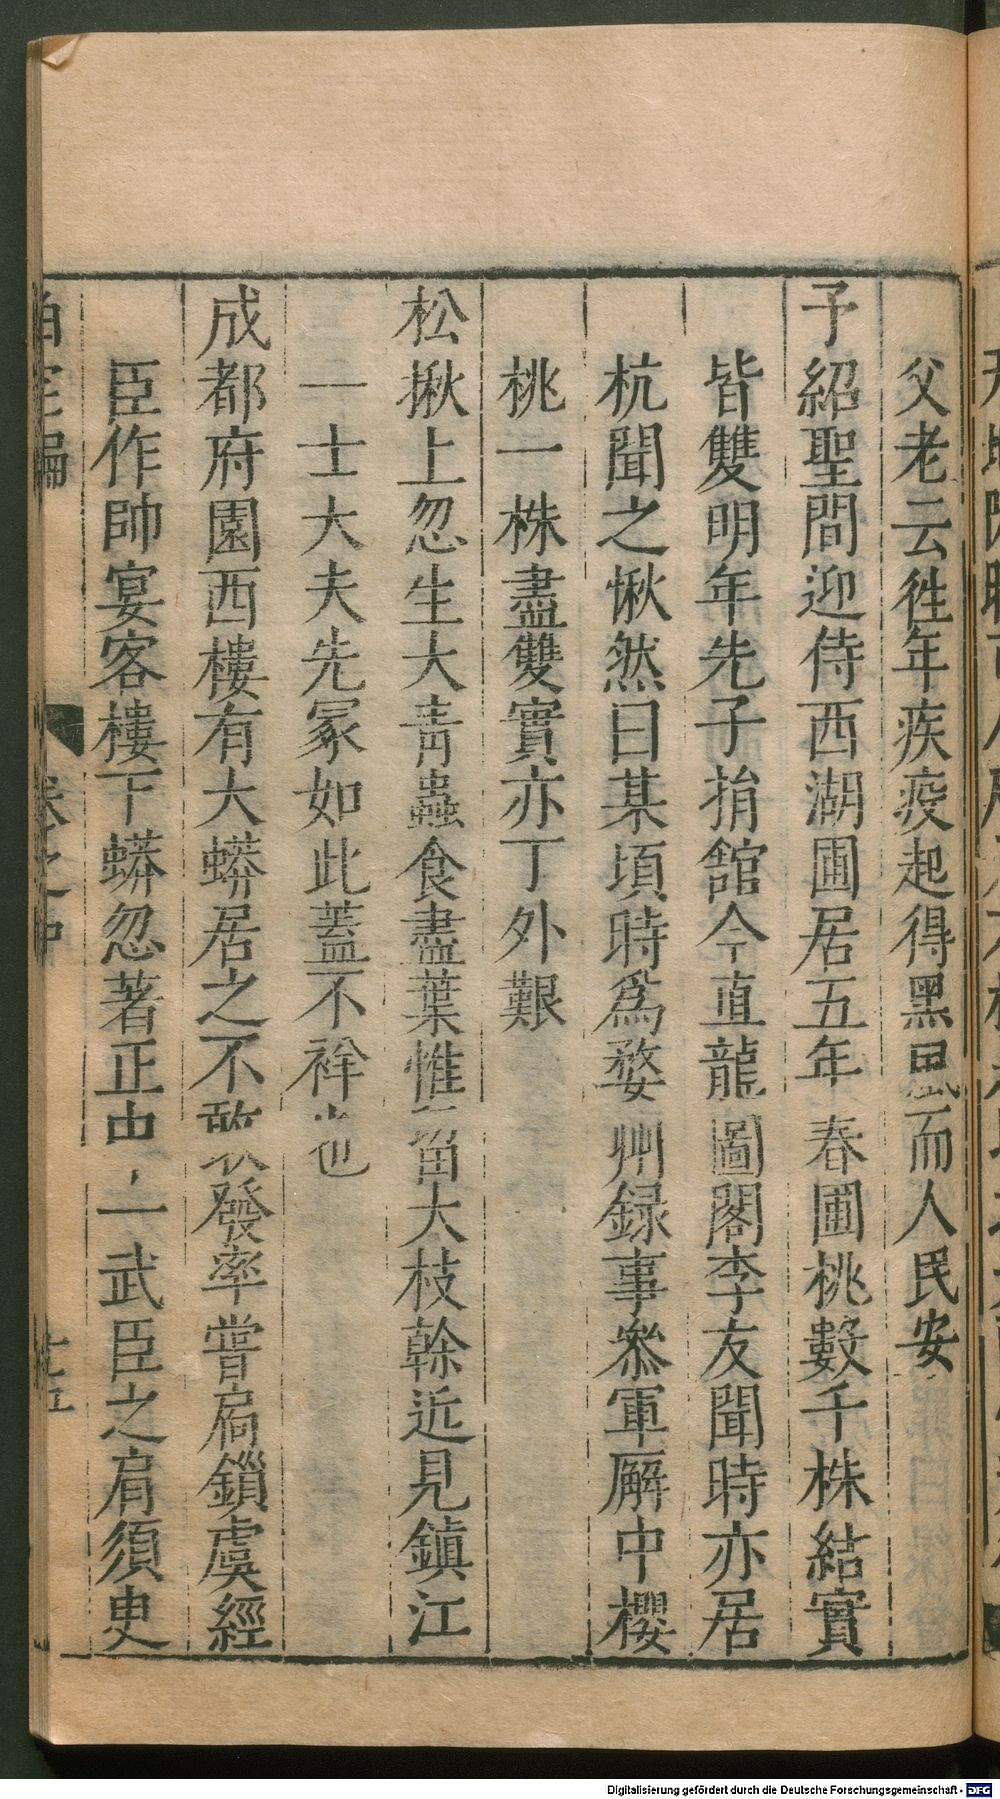 父老云徃年疾疫起得黑風而人民安
予紹聖間迎侍西湖圃居五年春圃桃數千株結實
皆雙明年先子捐館今直龍圖閣李友聞時亦居
杭聞之愀然曰某頃時爲婺州録事叅軍廨中櫻
桃一株盡雙實亦丁外艱
松揪上忽生大青蟲食盡葉惟留大枝榦近見鎮江
一士大夫先冢如此蓋不祥也
成都府園西樓有大蟒居之不敢發率嘗扃鎖虞經
臣作帥宴客樓下蟒忽著正中一武臣之肩須臾
泊宅編
卷之中
十五
Digitalisierung gefördert durch die Deutsche Forschungsgemeinschaft - DFG